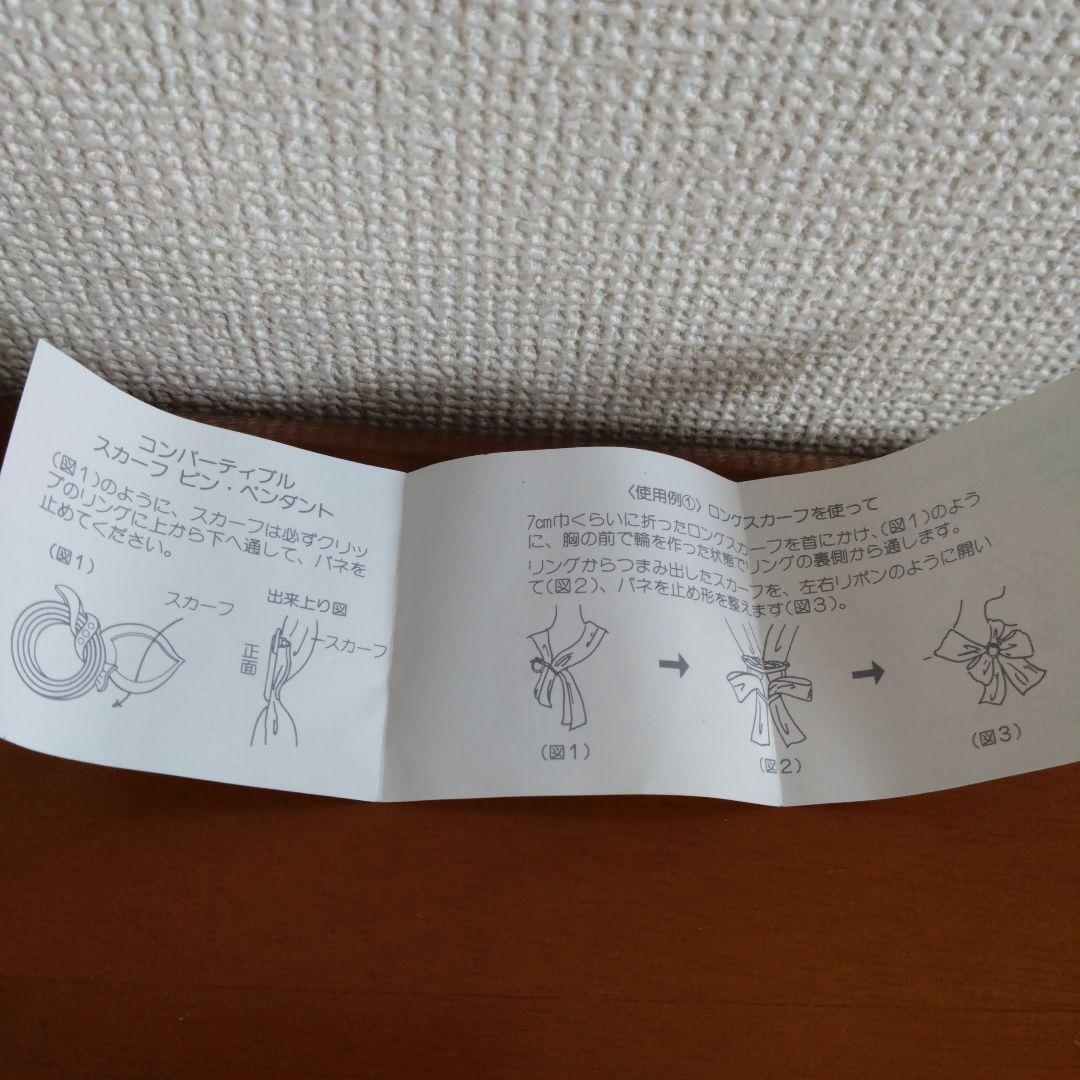 コンバーティブル
スカーフ ピン・ペンダント
(図1)のように、スカーフは必ずクリッ
プのリングに上から下へ通して、バネを
止めてください。
(図1)
スカーフ
出来上り図
正面
スカーフ
〈使用例①〉ロングスカーフを使って
7cm巾くらいに折ったロングスカーフを首にかけ、(図1)のよう
に、胸の前で輪を作った状態でリングの裏側から通します。
リングからつまみ出したスカーフを、左右リボンのように開い
て(図2)、バネを止め形を整えます(図3)。
(図1)
(図2)
(図3)